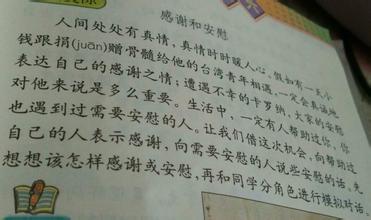 感谢和安慰
人间处处有真情,真情时时暖人心。假如有一天小
钱跟捐(juān)赠骨髓给他的台湾青年相遇,一定会真诚地
表达自己的感谢之情;遭遇不幸的卡罗纳,大家的安慰
对他来说是多么重要。生活中,一定有人帮助过你,你
也遇到过需要安慰的人。让我们借这次机会,向帮助过
自己的人表示感谢,向需要安慰的人说些安慰的话。先
想想该怎样感谢或安慰,再和同学分角色进行模拟对话。